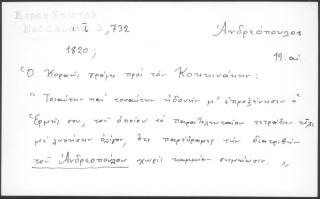 Κοραη Επιστολ
Εκδ Δαμαλα 3, 732
Ἀνδρεόπουλος
1820;
19. αι.
Ὁ Κοραῆς γράφει πρὸς τὸν Κοκκινάκην:
"Τοιαύτην καὶ τοσαύτην ἡδονὴν μ' ἐπροξένησεν ὁ
Ἑρμῆς σου, τοῦ ὁποίου τὸ παρατελευταῖον τετράδιον
με λυπήσῃ ὀλίγον, ὅτι παρέδραμες τὴν διατριβὴν
τοῦ Ἀνδρεοπούλου χωρὶς καμμίαν σημείωσιν.